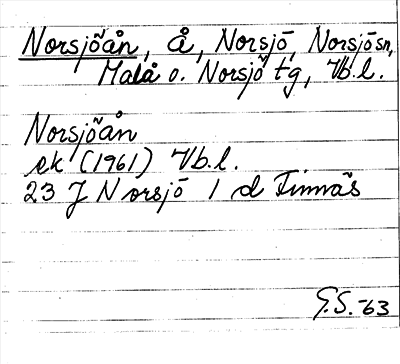 Norsjöån, Å, Norsjö, Norsjösn,
Malå o. Norsjö tg, Vb.l.
Norsjöån
ek (1961) Vb.l.
23 J Norsjö 1 d Finnäs
G.S.-63